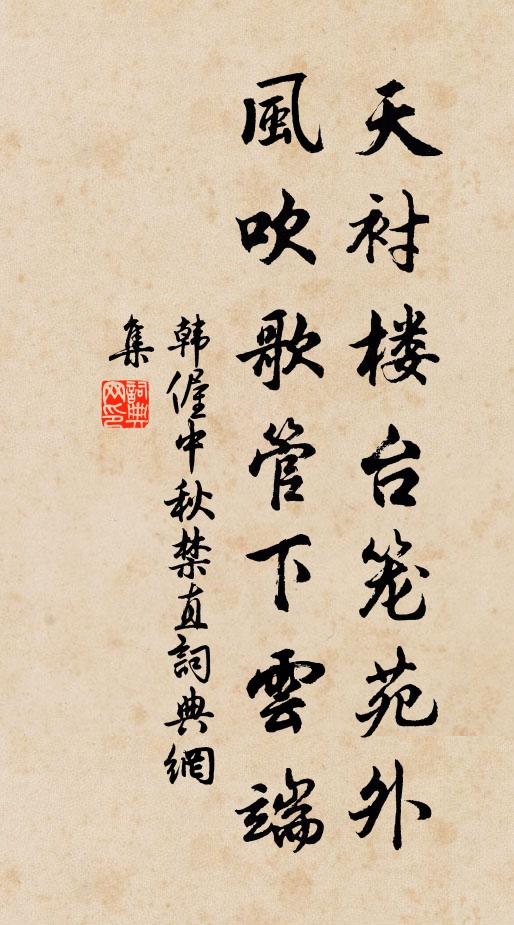 天衬楼台笼苑外
風吹歌管下雲端
韩偓中秋禁直詞典網
集
詞典网印